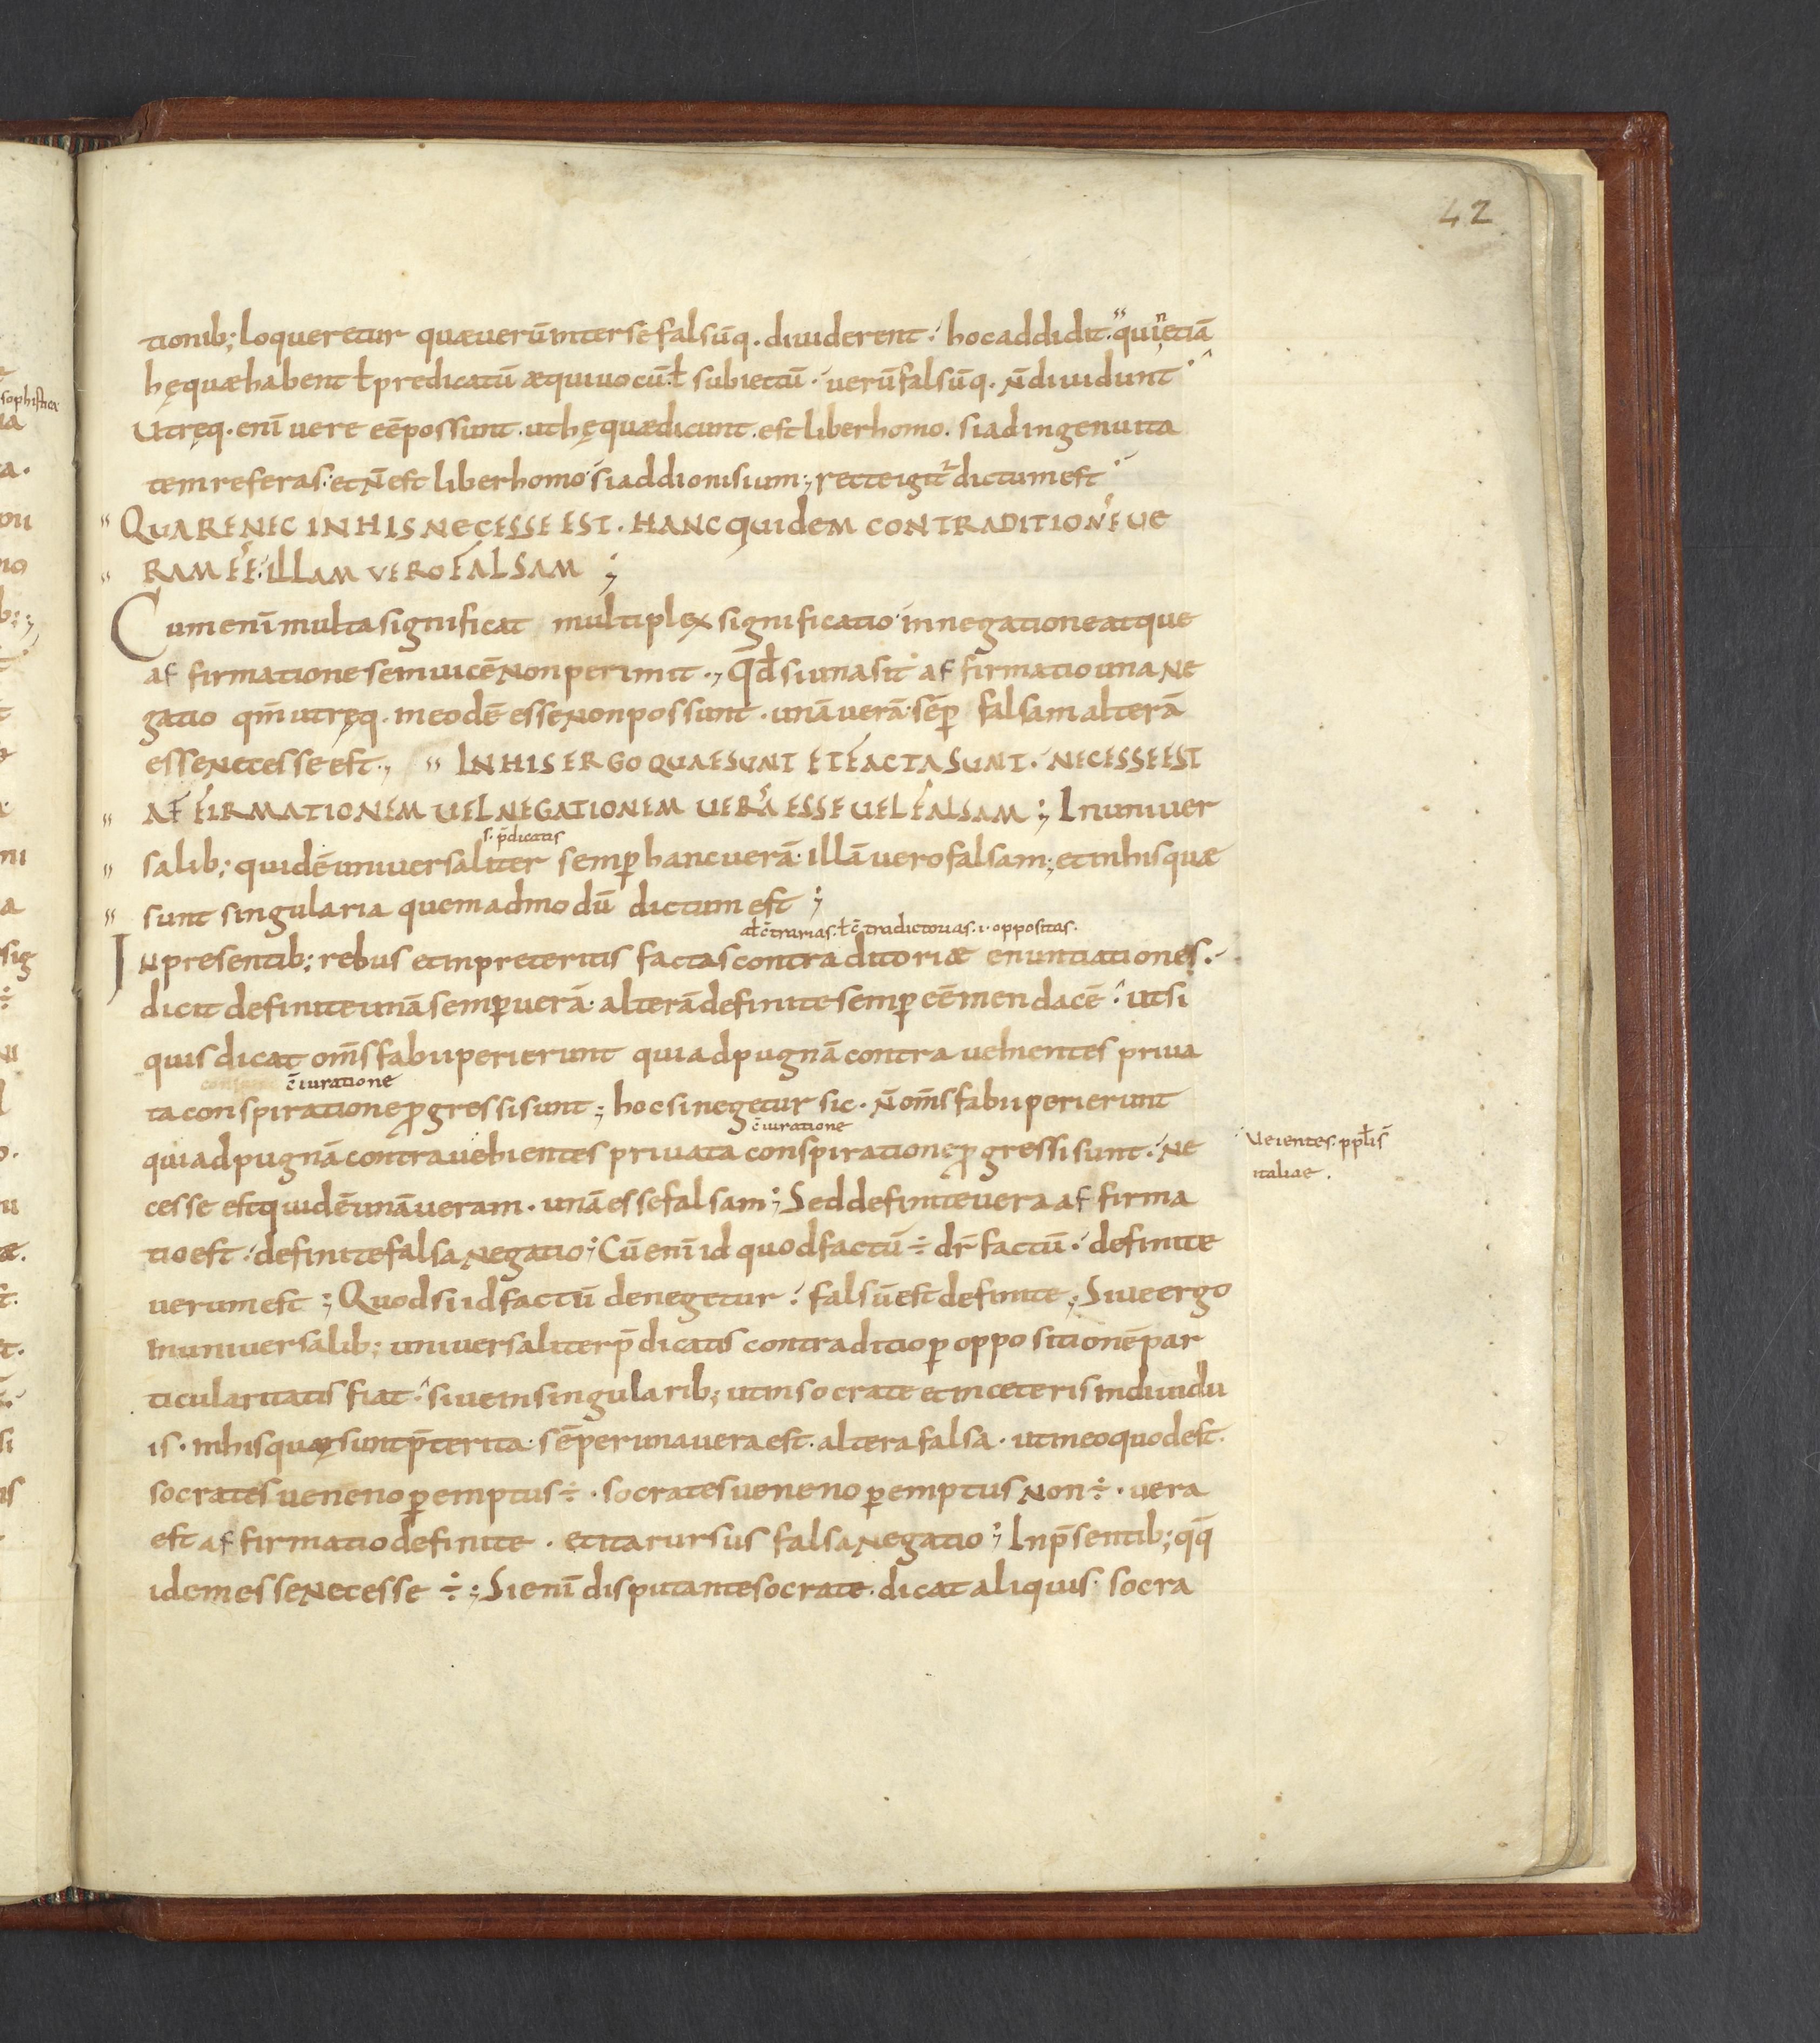 42
tionib; loqueretur quæ uerū inter se falsūq. diuiderent. hoc addidit. quin etiā
hę quæ habent ł predicatū æquiuocū ł subiectū. uerū falsūq. n̄ diuidunt
Utręq. eni̅ uere ee̅ possunt. ut hę quæ dicunt. est liber homo. si ad ingenuita
tem referas. et n̄ est liber homo si ad dionisium; recte igit᷑ dictum est
" QUARE NEC IN HIS NECESSE EST. HANC QUIDEM CONTRADITIONE UE
" RAM EE. ILLAM VERO FALSAM;
Cum eni̅ multa significat multiplex significatio in negatione atque
affirmatione sem uicē non perimit., Qd̄ si una sit affirmatio una ne
gatio qm̄ utręq. in eodē esse non possunt. unā uerā sēp falsam alterā
esse necesse est., " IN HIS ERGO QUAE SUNT ET FACTA SUNT. NECESSE EST
" AFFIRMATIONEM UEL NEGATIONEM UERA ESSE UEL FALSAM; In uniuer
s. p̄dicatis
" salib; quidē uniuersaliter semp̲ hanc uerā. illā uero falsam; et in his quæ
" sunt singularia quemadmodū dictum est;
ał c̄trarias. ł c̄tradictorias. i. oppositas.
In presentib; rebus et in preteritis factas contraditoriæ enuntiationes.
dicit definite unā semp̲ uerā. alterā definite semp̲ ee̅ mendacē. ut si
quis dicat om̄s fabii perierunt qui ad pugnā contra uehientes priua
c̄iuratione
ta conspiratione p̲gressi sunt; hoc si negetur sic. n̄ om̄s fabii perierunt
c̄iuratione
qui ad pugnā contra uehientes priuata conspiratione p̲gressi sunt. ne
Veientes. ppl̄is
italiae.
cesse est quidē unā ueram. unā esse falsam; Sed definite uera affirma
tio est. definite falsa negatio; Cū eni̅ id quod factū ÷ dr̄ factū. definite
uerum est; Quod si id factū denegetur. falsū est definite; Siue ergo
in uniuersalib; uniuersaliter p̄dicatis contraditio p̲ oppositionē par
ticularitatis fiat. siue in singularib; ut in socrate et in ceteris indiuidu
is. in his quæ sunt p̄terita. sēper una uera est. altera falsa. ut in eo quod est.
socrates ueneno p̲emptus ÷. socrates ueneno p̲emptus non ÷. uera
est affirmatio definite. et ita rursus falsa negatio; In p̄sentib; qq̄
idem esse necesse ÷; Si eni̅ disputante socrate. dicat aliquis. socra